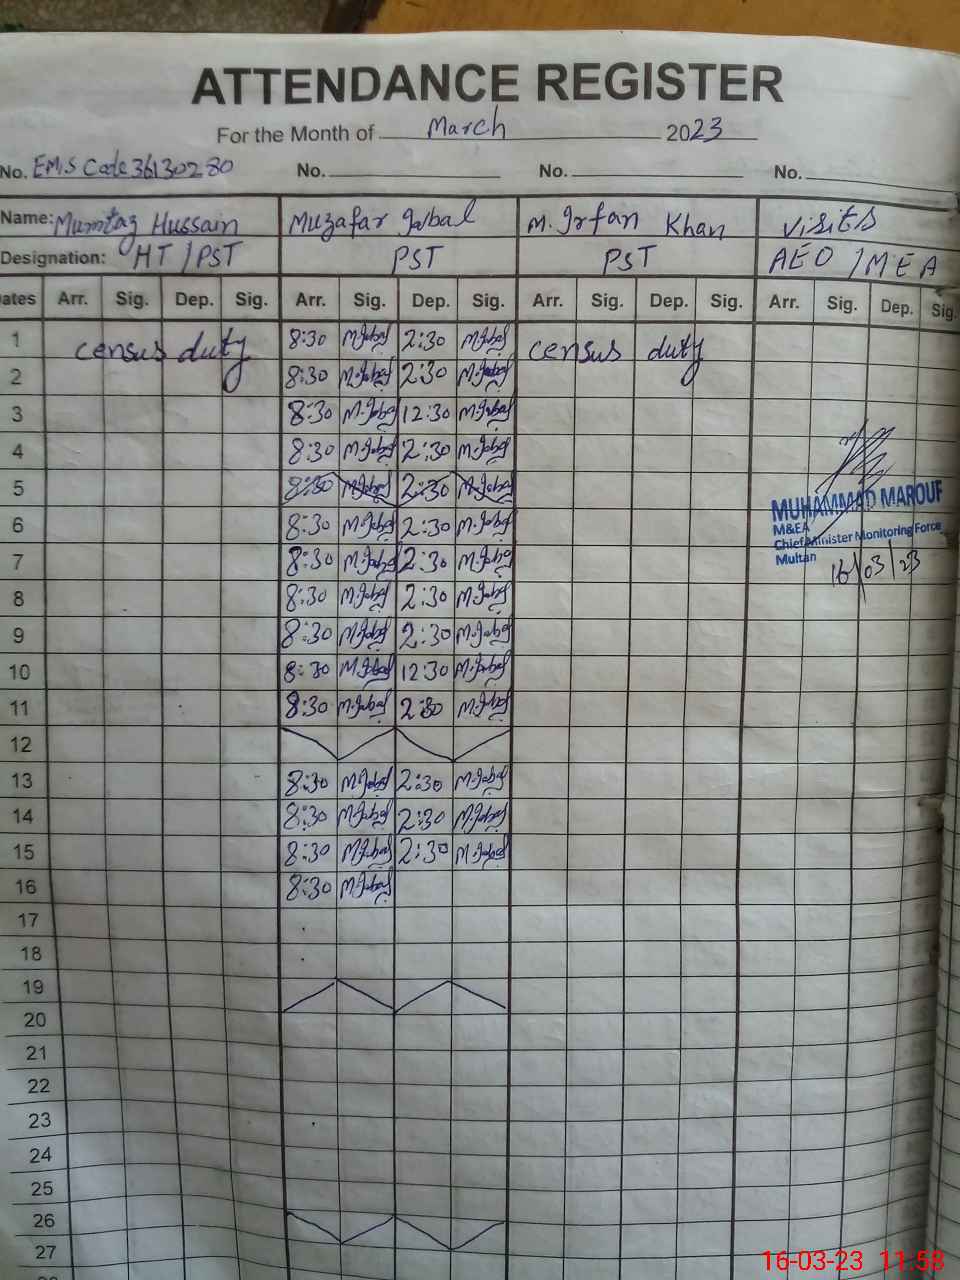 ATTENDANCE REGISTER
For the Month of March 2023
No. EMIS Code 36130280 No. No. No.
Name: Mumtaz Hussain Muzafar Iqbal M. Irfan Khan Visits
Designation: HT / PST PST PST AEO / MEA
Dates Arr. Sig. Dep. Sig. Arr. Sig. Dep. Sig. Arr. Sig. Dep. Sig. Arr. Sig. Dep. Sig.
1 census duty 8:30 M.Iqbal 2:30 M.Iqbal census duty
2 8:30 M.Iqbal 2:30 M.Iqbal
3 8:30 M.Iqbal 12:30 M.Iqbal
4 8:30 M.Iqbal 2:30 M.Iqbal
5 8:30 M.Iqbal 2:30 M.Iqbal
6 8:30 M.Iqbal 2:30 M.Iqbal
7 8:30 M.Iqbal 2:30 M.Iqbal
8 8:30 M.Iqbal 2:30 M.Iqbal
9 8:30 M.Iqbal 2:30 M.Iqbal
10 8:30 M.Iqbal 12:30 M.Iqbal
11 8:30 M.Iqbal 2:30 M.Iqbal
12
13 8:30 M.Iqbal 2:30 M.Iqbal
14 8:30 M.Iqbal 2:30 M.Iqbal
15 8:30 M.Iqbal 2:30 M.Iqbal
16 8:30 M.Iqbal
17
18
19
20
21
22
23
24
25
26
27
MUHAMMAD MAROUF
M&EA
Chief Minister Monitoring Force
Multan
16/03/23
16-03-23 11:58